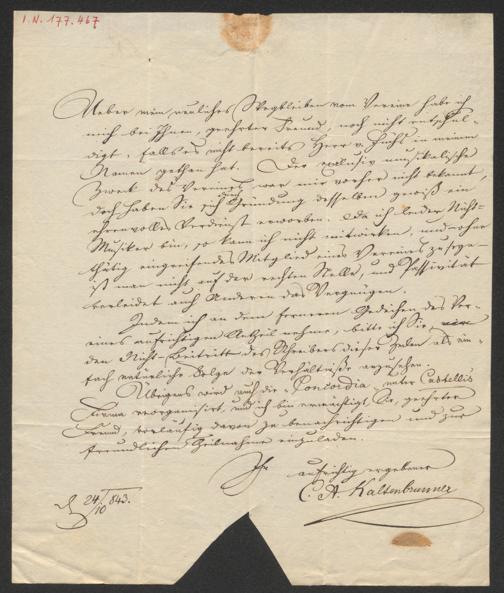 I.N. 177.467
Ueber mein neuliches Wegbleiben vom Vereine habe ich
mich bei Ihnen, geehrter Freund, noch nicht entschul-
digt, falls es nicht bereits Herr v. Fuchs in meinem
Namen gethan hat. Der exclusiv musikalische
Zweck des Vereines war mir vorher nicht bekannt,
doch haben Sie sich durch Gründung desselben gewiß ein
ehrenvolles Verdienst erworben. Da ich leider Nicht-
Musiker bin, so kann ich nicht mitwirken, und ohne
thätig eingreifendes Mitglied eines Vereines zu seyn
ist man nicht auf der rechten Stelle, und Passivität
verleidet auch Anderen das Vergnügen.
Indem ich an dem ferneren Gedeihen des Ver-
eines aufrichtigen Antheil nehme, bitte ich Sie,
den Nicht-Beitritt des Schreibers dieser Zeilen als ein-
fach natürliche Folge der Verhältniße anzusehen.
Übrigens wird auch die "Concordia" unter Castellis
Firma reorganisirt, und ich bin ermächtigt Sie, geehrter
Freund, vorläufig davon zu benachrichtigen und zur
freundlichen Theilnahme einzuladen.
Ihr
aufrichtig ergebener
C. A. Kaltenbrunner
24/10 843.